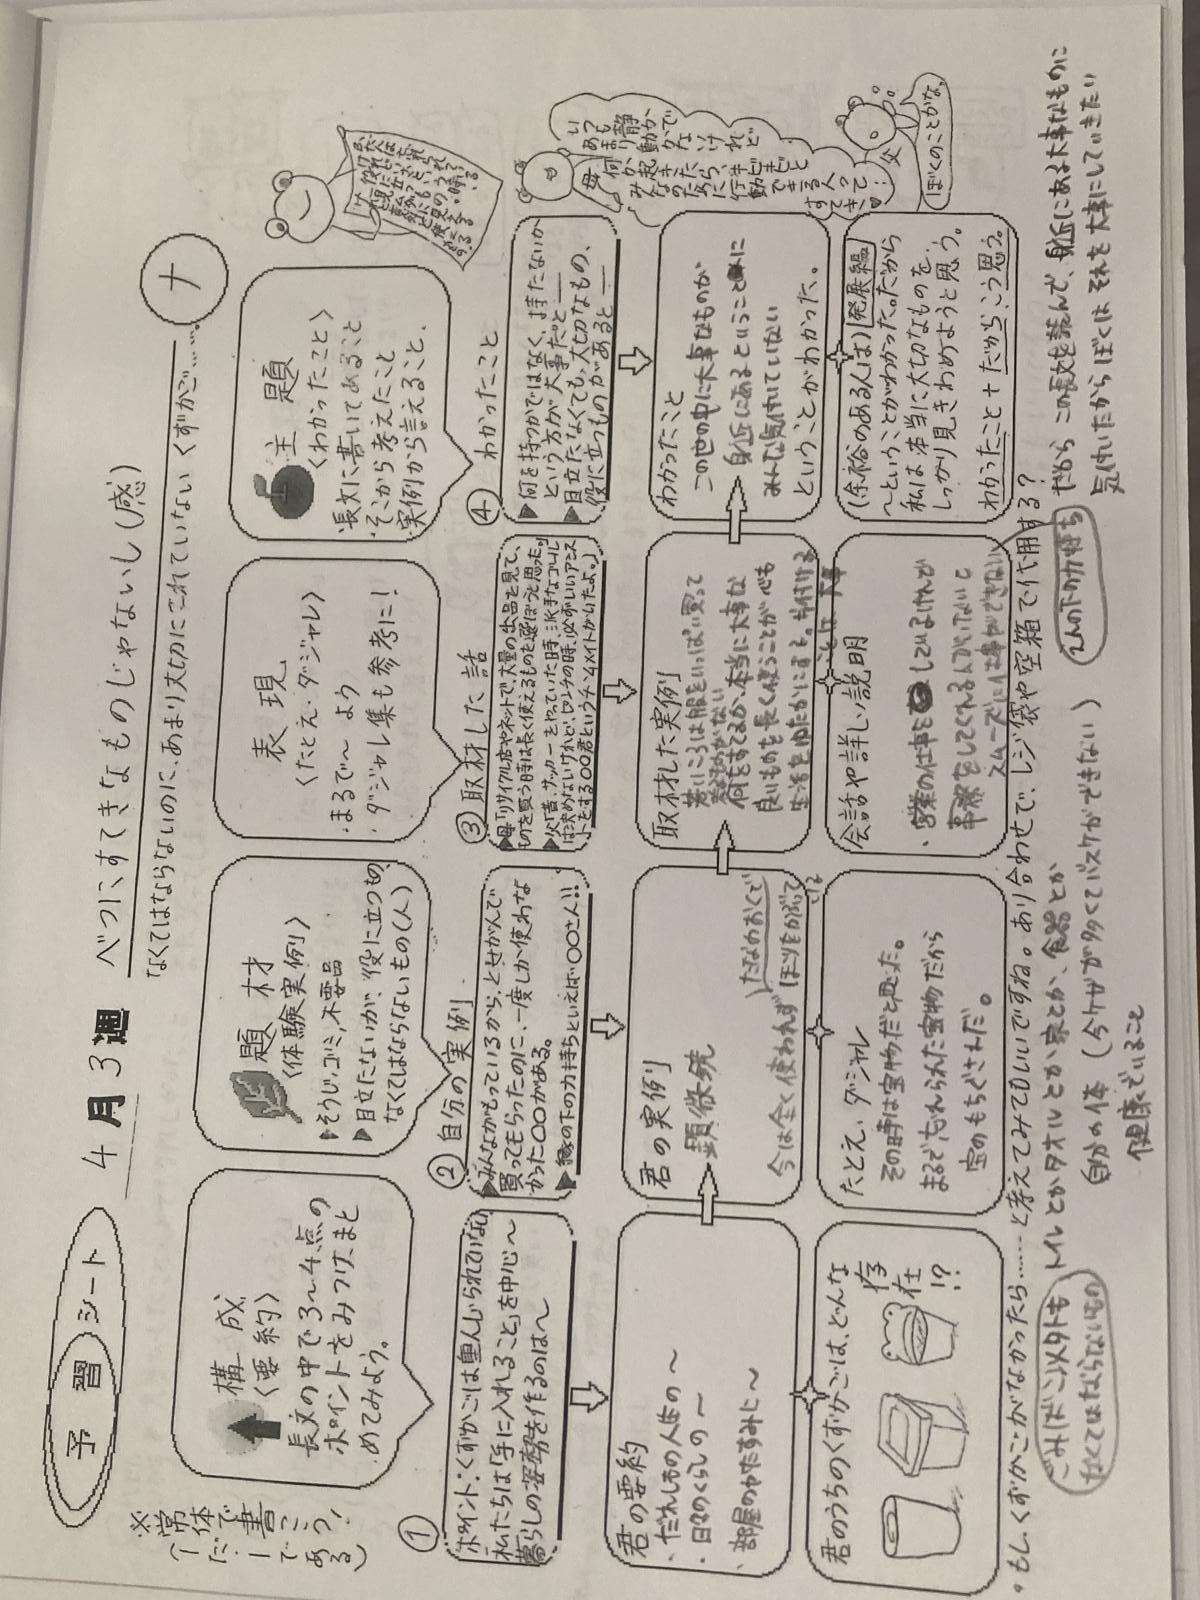 予習シート
4月3週
べつにすてきなものじゃないし(感)
ナ
なくてはならないのに、あまり大切にされていない くずかご……
※常体で書こう!
(〜だ・〜である)
構成
〈要約〉
長文の中で3〜4点の
ポイントをみつけ、まと
めてみよう。
題材
〈体験実例〉
▶そうじ、ゴミ、不要品
▶目立たないが、役に立つもの
なくてはならないもの(人)
表現
〈たとえ・ダジャレ〉
・まるで〜 より
・ダジャレ集も参考に!
主題
〈わかったこと〉
長文に書いてあること
そこから考えたこと
実例から言えること。
①
ポイント:くずかごは重んじられていない
私たちは「手に入れること」を中心〜
暮らしの姿勢を作るのは〜
② 自分の実例
▶みんながもっているから、とせがんで
買ってもらったのに、一度しか使わな
かった〇〇がある。
▶縁の下の力持ちといえば〇〇さん!!
③ 取材した話
▶母「リサイクル店やネットで、大量の出品を見て、
ものを買う時は長く使えるものを選ぼうと思った。」
▶父「昔、サッカーをやっていた時、派手なゴールし
は決めないけれど、ピンチの時、必ずいいアシス
トをする〇〇君というチームメイトがいたよ。」
④ わかったこと
▶何を持つかではなく、持たないか
という方が大事だと___
▶目立たなくても、大切なもの、
役に立つものがあると___
母
いつも静かで
あまり動かないけれど
何か起きたら、キビキビと
みんなのために行動できる人って
すてき♥
父
ぼくのことかな。
君の要約
・だれしもの人生の〜
・日々のくらしの〜
・部屋のかたすみに〜
君の実例
顕微鏡
今は全く使われず
たなのおくで
ほこりをかぶって
いる
取材した実例
若いころは服をいっぱい買って
着るものがない
何をすてるか、本当に大事な
良いものを長く使うことが心も
生活をゆたかにする。片付ける
ことは大事
わかったこと
この世の中に大事なものが
身近にあるということに
みんな気付いていない
ということがわかった。
君のうちのくずかごは、どんな
存在!?
たとえ、ダジャレ
その時は宝物だと思った。
まるで、忘れられた宝物だから
宝のもちぐされだ。
会話や詳しい説明
・営業の仕事をしているけれど
事務をしてくれる人がいないと
スムーズに仕事ができない
(余裕のある人は) 発展編
〜ということがわかった。だから
私は本当に大切なものを、
しっかり見きわめようと思う。
わかったこと + だから、こう思う。
・もし、くずかごがなかったら……と考えてみてもいいですね。あり合わせで、レジ袋や空箱で代用する?
ごみばこ以外も
なくてはならないもの
トイレとかタオルとか家とか、食器とか
自分の体 (今ケガが多くてバスケができない)
健康でいること
えんの下の力持ち
だから この長文を読んで、身近にある大事なものに
気付いたからぼくは それを大事にしていきたい